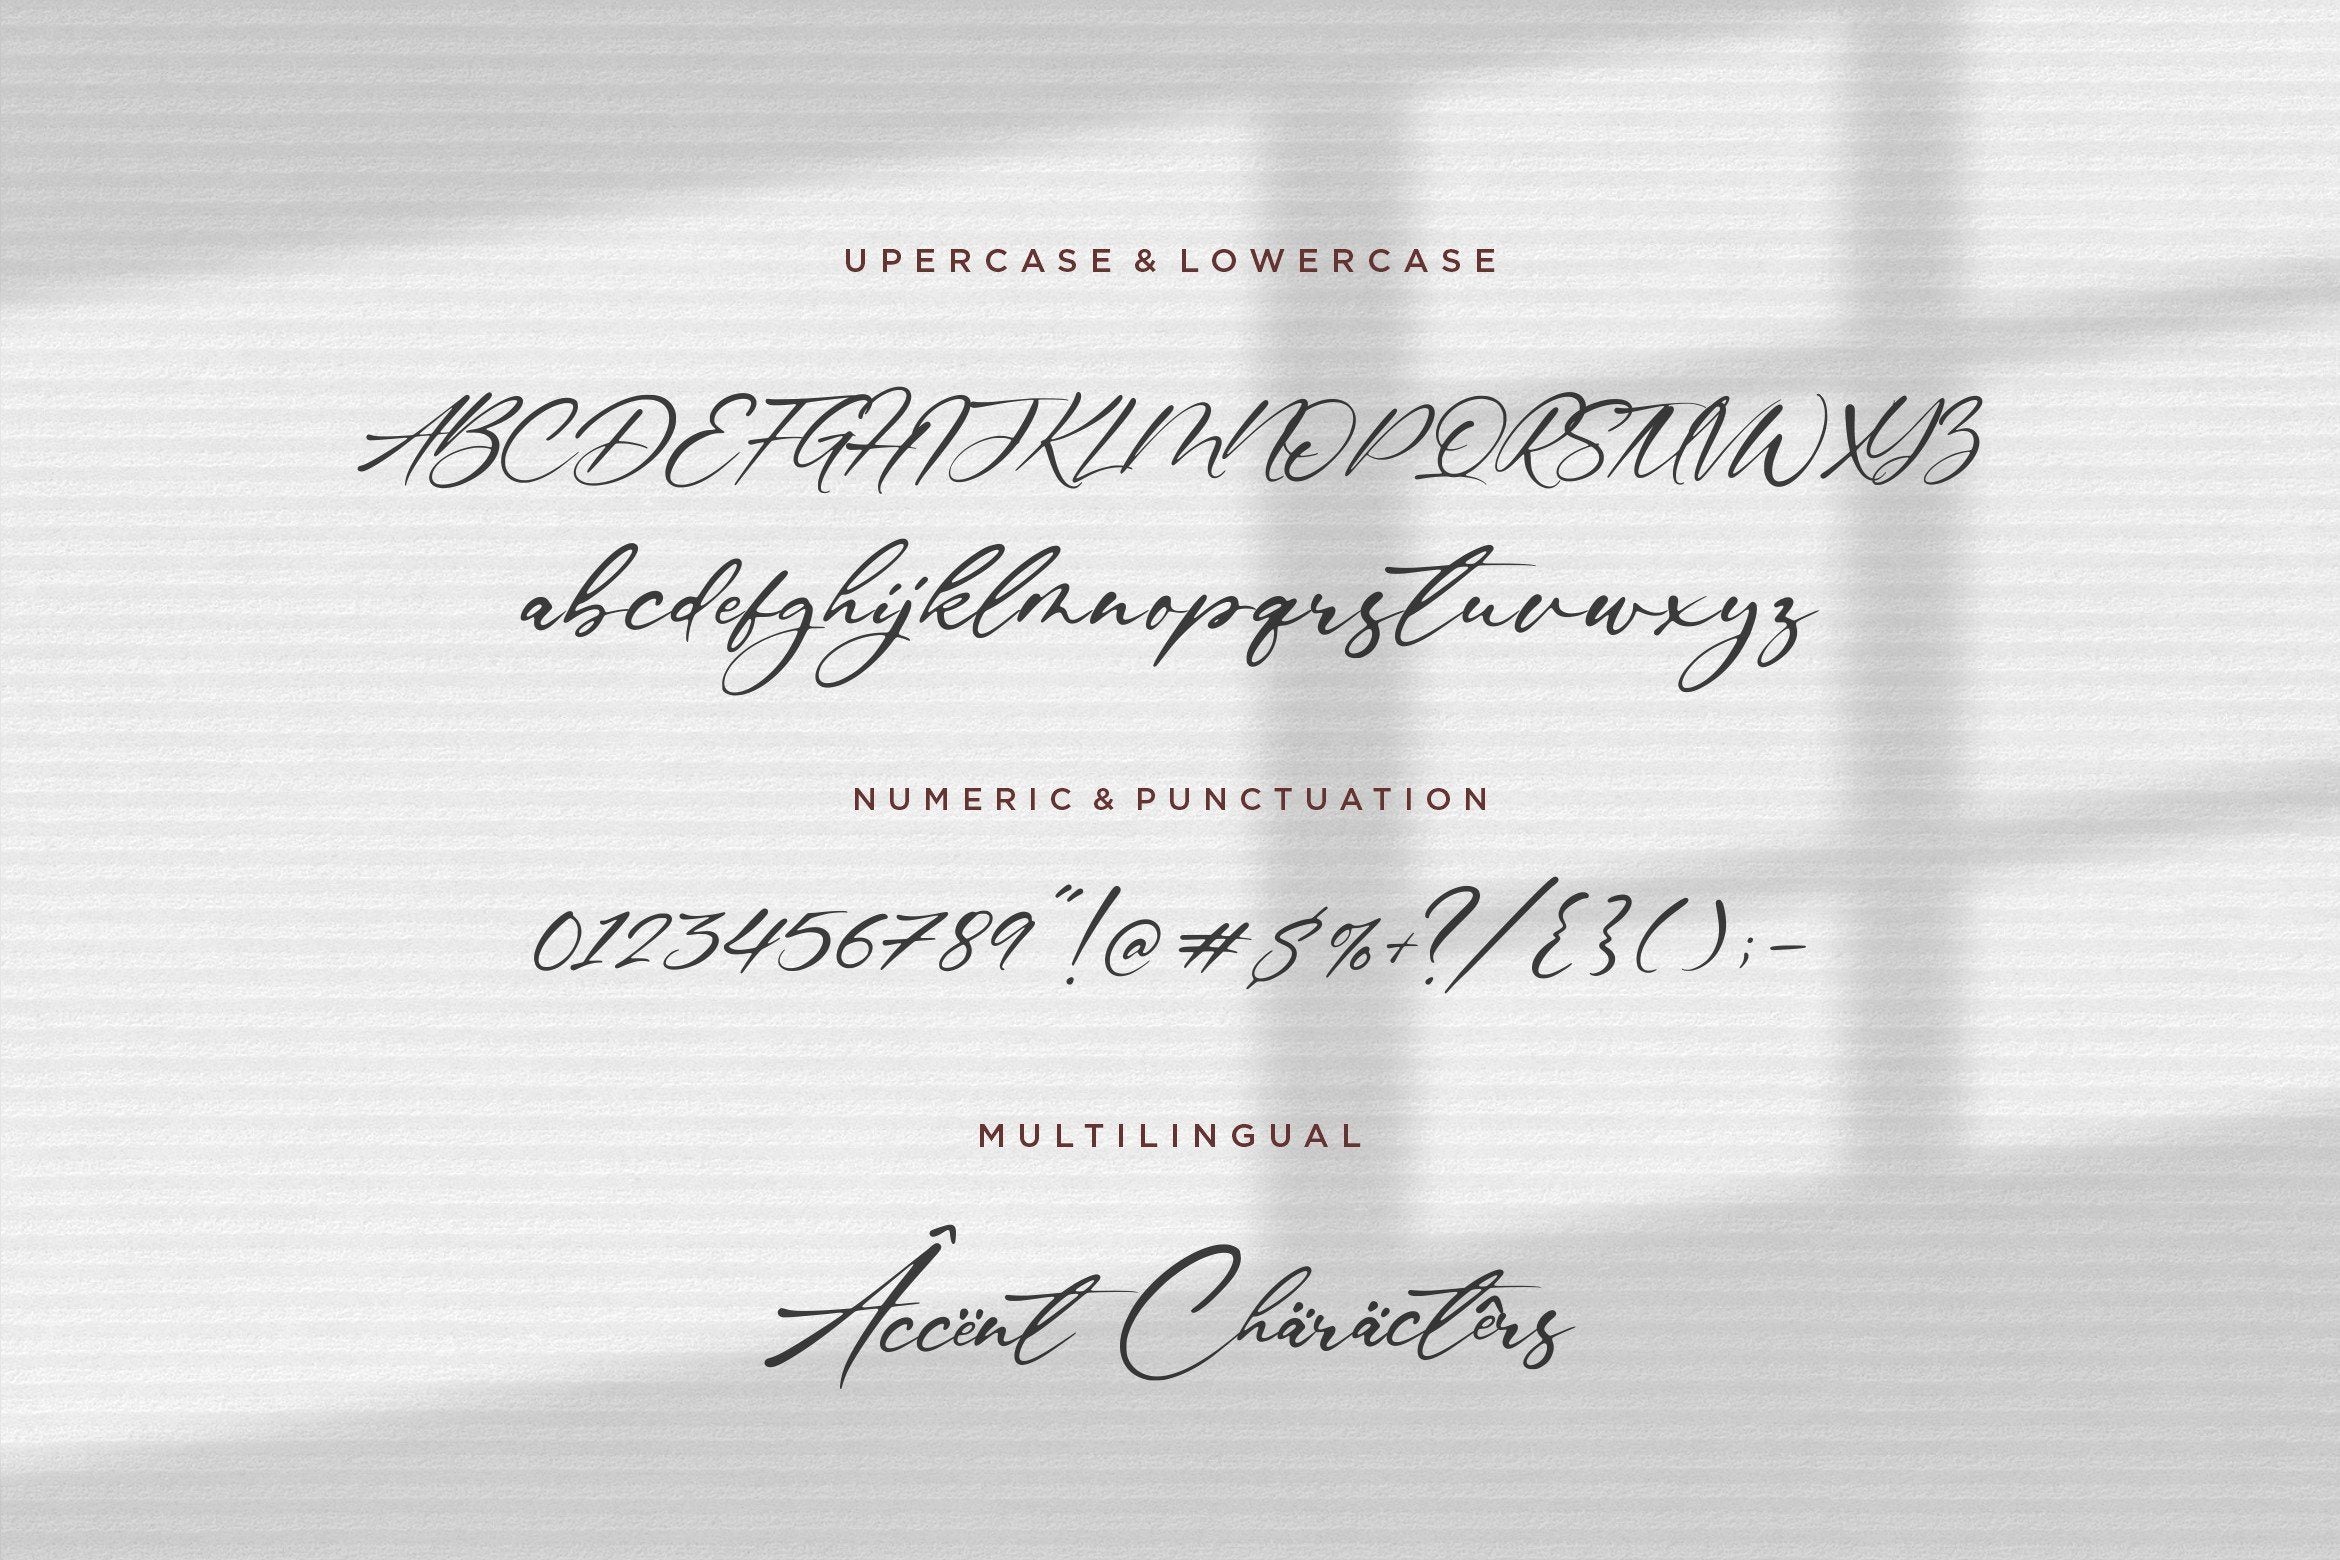 UPERCASE & LOWERCASE
ABCDEFGHIJKLMNOPQRSTUVWXYZ
abcdefghijklmnopqrstuvwxyz
NUMERIC & PUNCTUATION
0123456789"!@#$%+?/{}();-
MULTILINGUAL
Âccënt Chäräctêrs